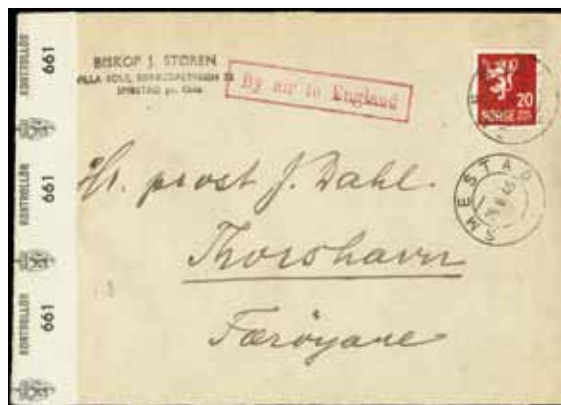 KONTROLLÖR
661
KONTROLLÖR
661
KONTROLLÖR
661
BISKOP J. STØREN
VILLA SOLI, SØRKEDALSVEIEN
SMESTAD pr. Oslo
By air to England
20
NORGE
SMESTAD
Hr. prost J. Dahl.
Thorshavn
Færøyane